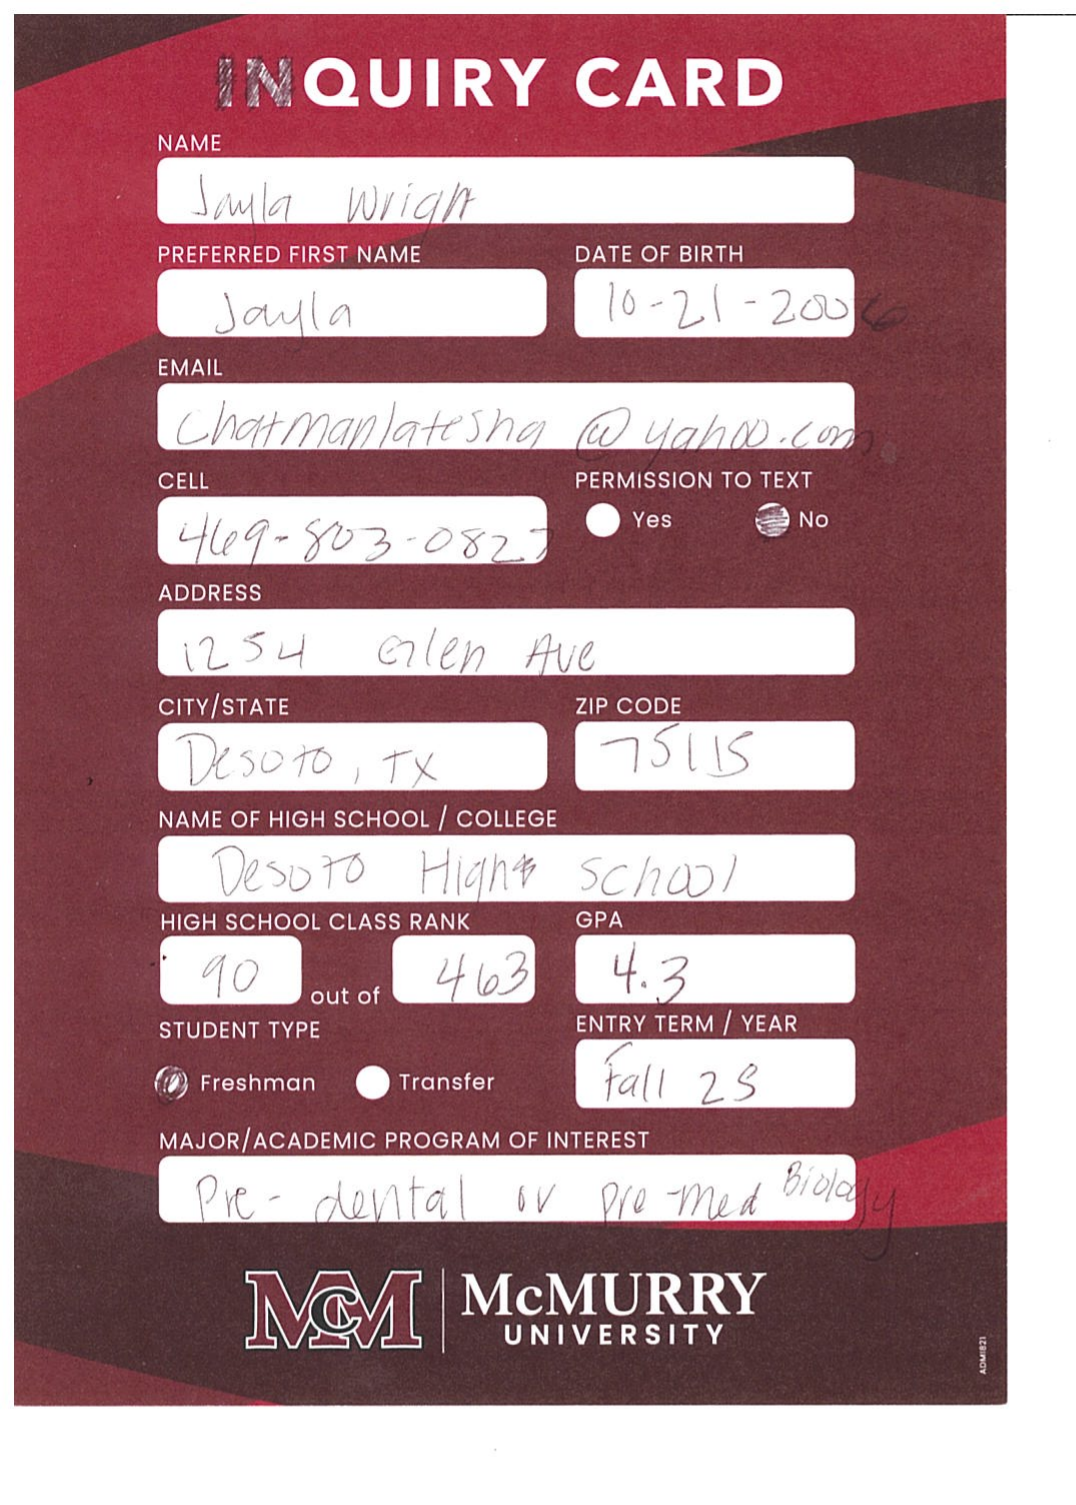 INQUIRY CARD
NAME
Jayla Wright
PREFERRED FIRST NAME
DATE OF BIRTH
Jayla
10-21-2006
EMAIL
chatmanlatesha@yahoo.com
CELL
PERMISSION TO TEXT
469-803-0827
Yes
No
ADDRESS
1254 Glen Ave
CITY/STATE
ZIP CODE
Desoto, TX
75115
NAME OF HIGH SCHOOL / COLLEGE
Desoto High School
HIGH SCHOOL CLASS RANK
GPA
90 out of 463
4.3
STUDENT TYPE
ENTRY TERM / YEAR
Freshman
Transfer
Fall 25
MAJOR/ACADEMIC PROGRAM OF INTEREST
Pre-dental or pre-med Biology
MCM
McMURRY
UNIVERSITY
ADM1821